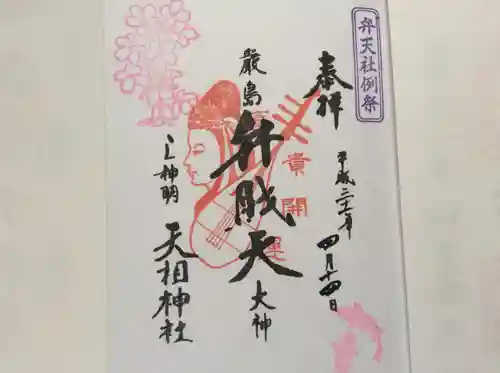 弁天社例祭
奉拝
平成二十七年
四月十四日
貴開運
嚴島
弁財天
大神
下神明
天祖神社